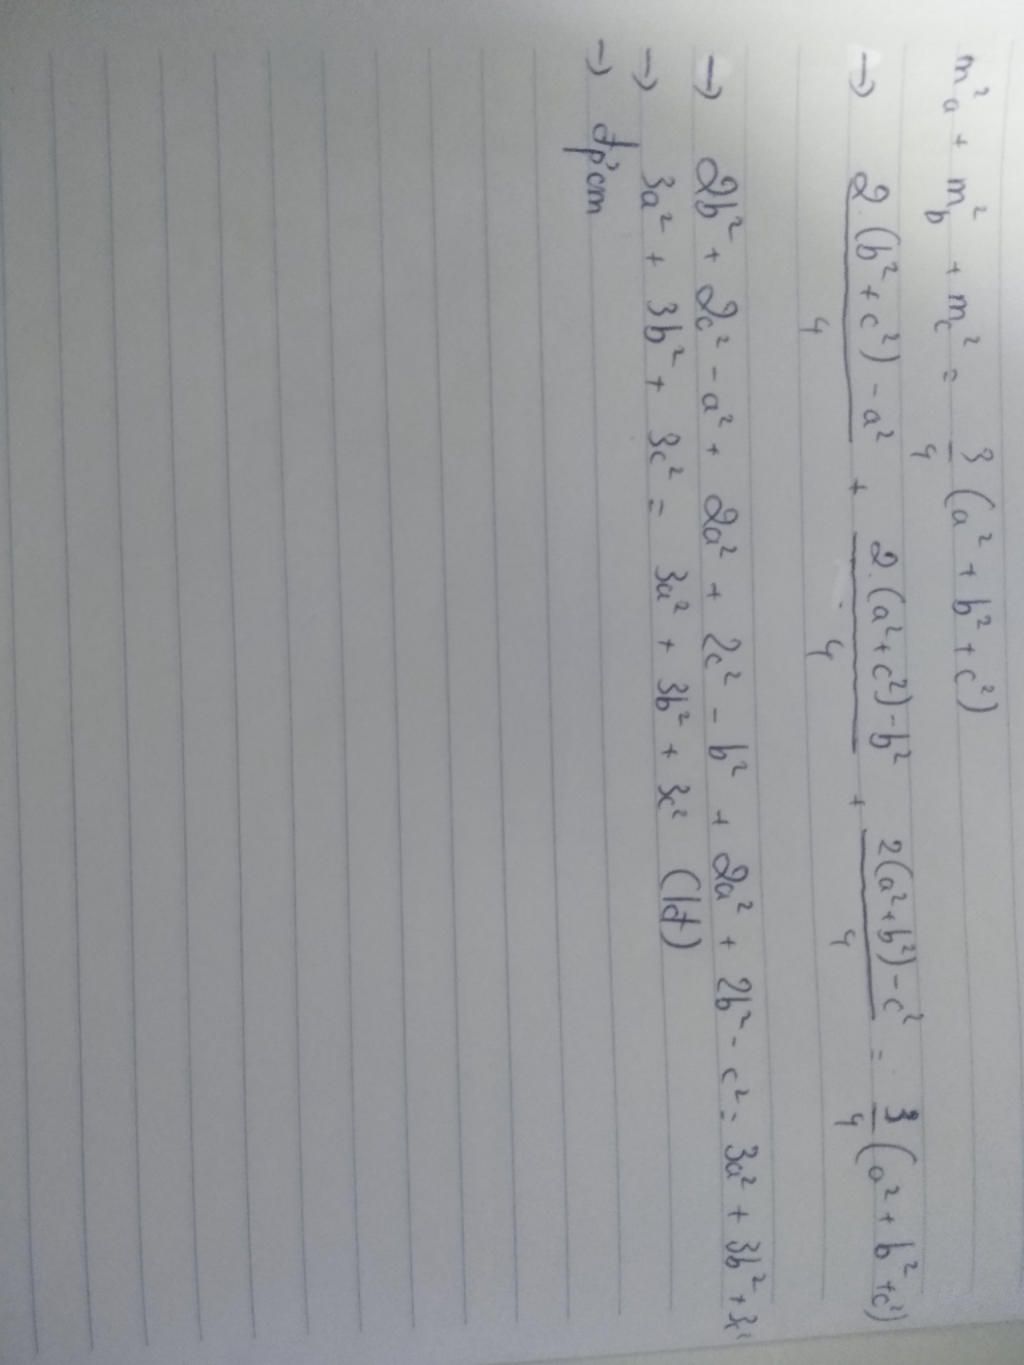 m²a + m²b + m²c = 3/4 (a² + b² + c²)
→ 2.(b² + c²) - a²/4 + 2.(a² + c²) - b²/4 + 2(a² + b²) - c²/4 = 3/4 (a² + b² + c²)
→ 2b² + 2c² - a² + 2a² + 2c² - b² + 2a² + 2b² - c² = 3a² + 3b² + 3c²
→ 3a² + 3b² + 3c² = 3a² + 3b² + 3c² (lđ)
→ đpcm